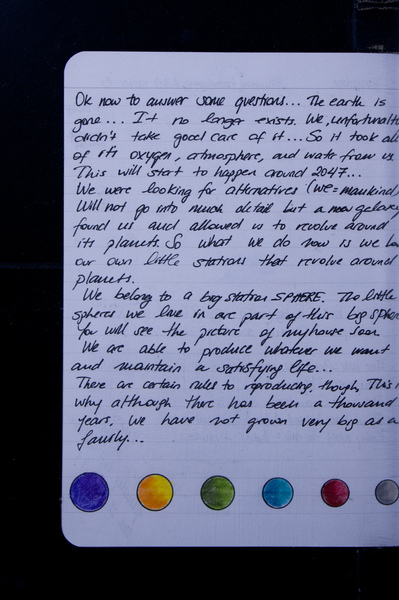 Ok now to answer some questions... The earth is
gone... It no longer exists. We, unfortunatl
didn't take good care of it...So it took all
of its oxygen, atmosphere, and water from us
This will start to happen around 2047...
We were looking for alternatives (we=mankind)
Will not go into much detail but a new galaxy
found us and allowed us to revolve around
its planets. So what we do now is we
our own little stations that revolve around
planets.
We belong to a big station SPHERE. The little
spheres we live in are part of this big spher
you will see the picture of my house soon.
We are able to produce whatever we want
and maintain a satisfying life...
There are certain rules to reproducing, though. This i
why although there has been a thousand
years, we have not grown very big as a
family...